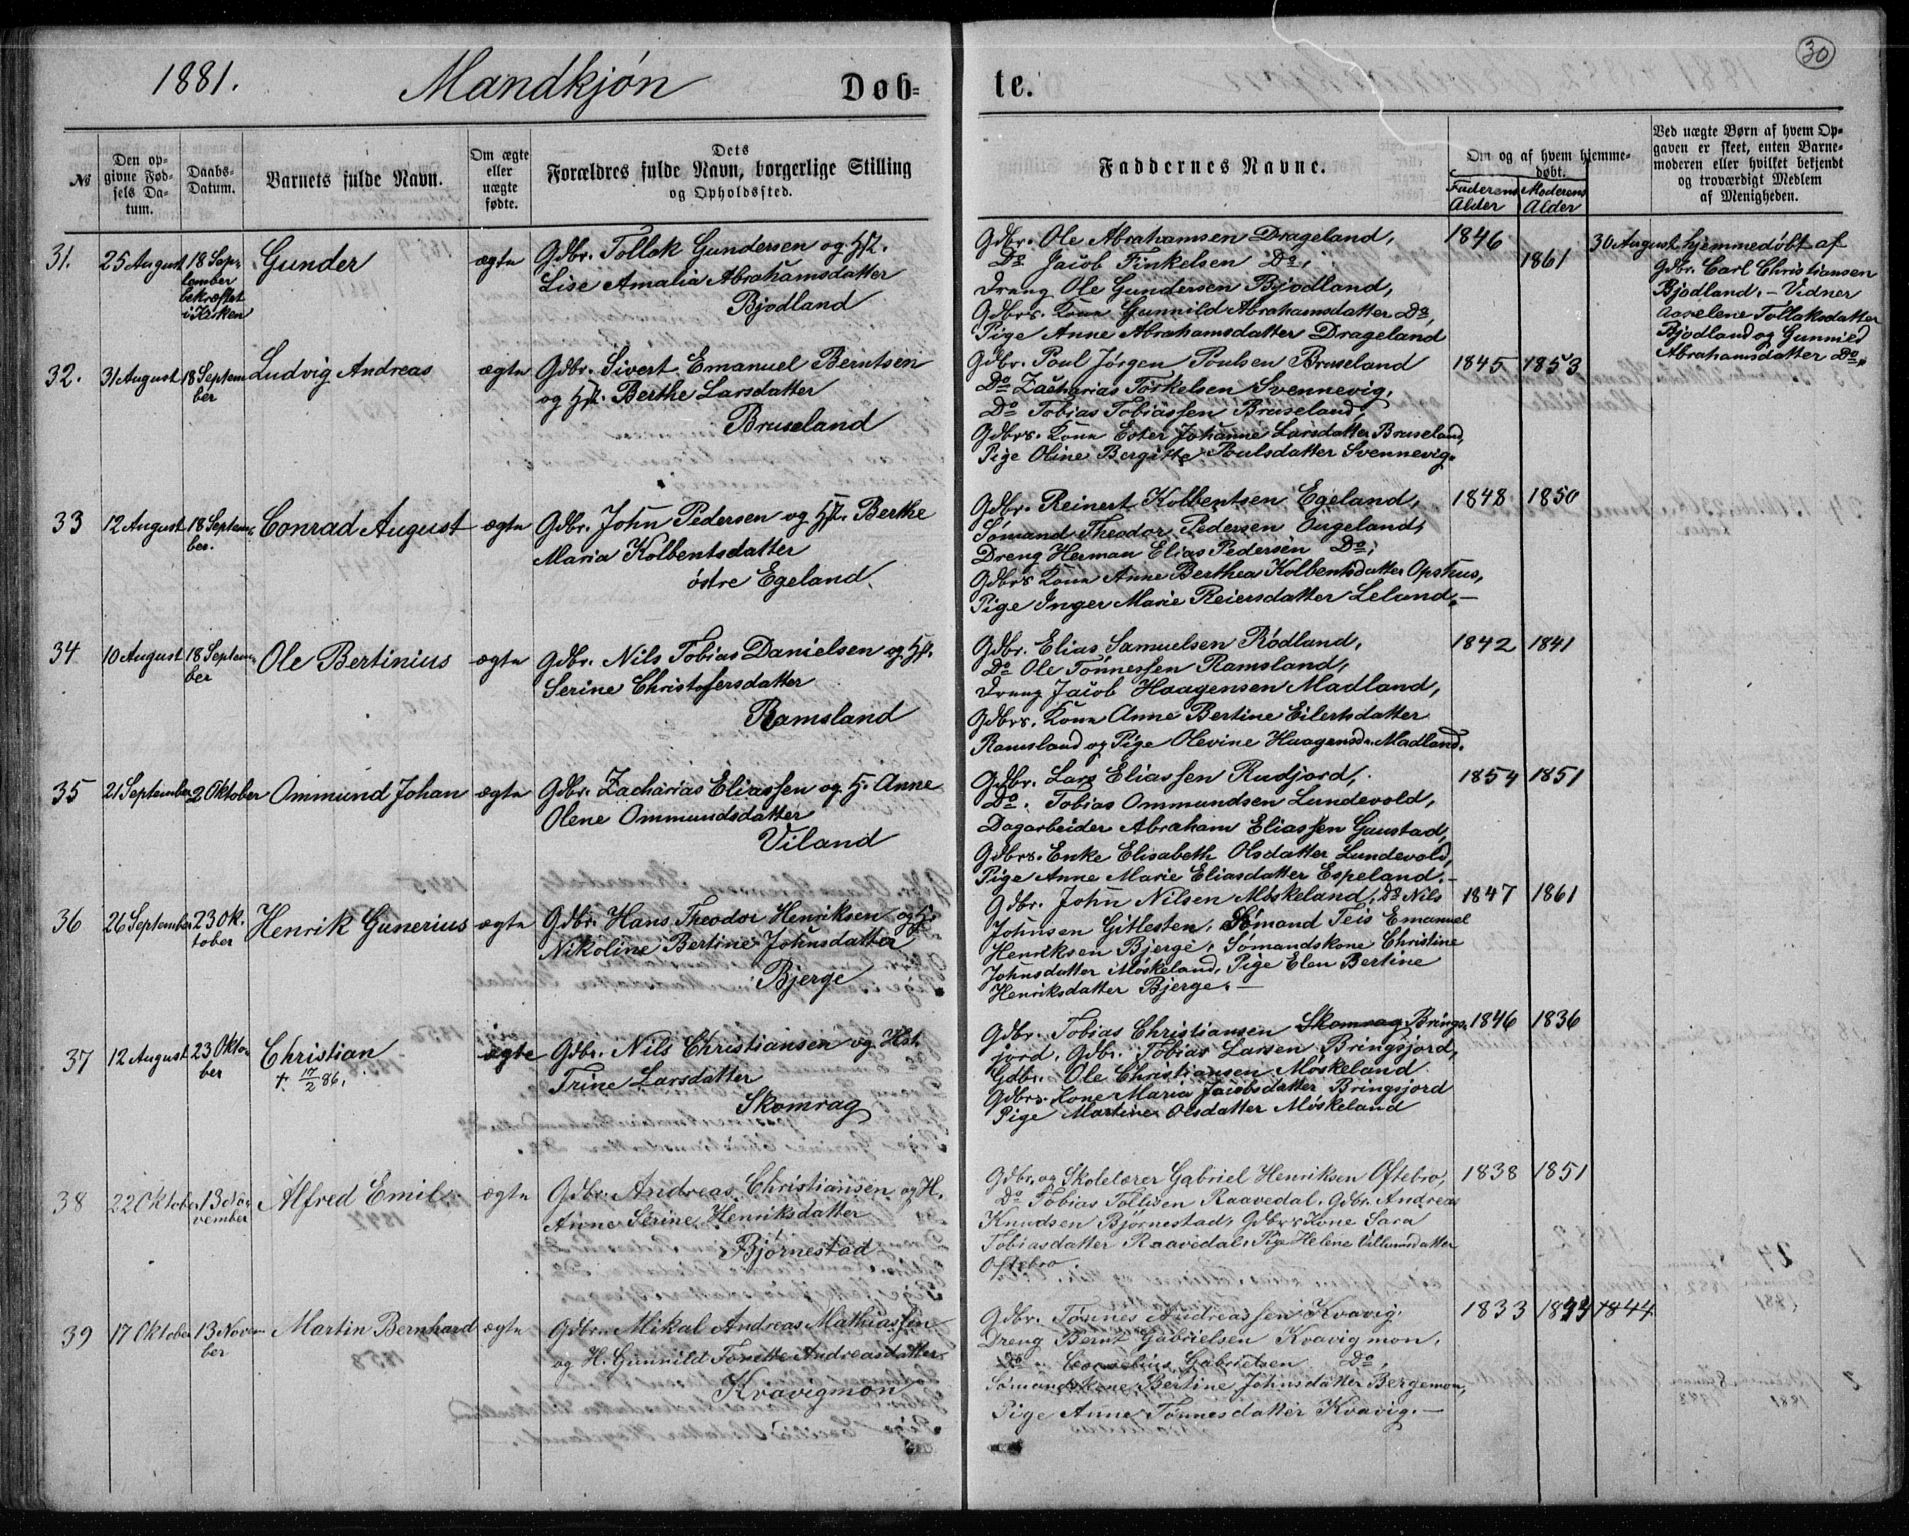 30
1881. Mandkjøn Døb- te.
№
Den op-
givne Fød-
sels Da-
tum.
Daabs-
Datum.
Barnets fulde Navn.
Om ægte
eller
uægte
fødte.
Dets
Forældres fulde Navn, borgerlige Stilling
og Opholdssted.
Faddernes Navne.
Om og af hvem hjemme-
døbt.
Faderens Alder
Moderens Alder
Ved uægte Børn af hvem Op-
gaven er skeet, enten Barne-
moderen eller hvilket bekjendt
og troværdigt Medlem
af Menigheden.
31.
25 August
18 Sep-
tember
bekræftet
i Kirken
Gunder
ægte
Gdbr. Tollak Gundersen og Hst.
Lise Amalia Abrahamsdatter
Bjodland
Gdbr. Ole Abrahamsen Drageland,
Do Jacob Tinkelsen Do,
Dreng Ole Gundersen Bjodland,
Gdbrs. Kone Gunnild Abrahamsdatter Do,
Pige Anne Abrahamsdatter Drageland
1846
1861
30 August hjemmedøbt af
Gdbr. Carl Christiansen
Bjodland. - Vidner
Aaselene Tollaksdatter
Bjodland og Gunnild
Abrahamsdatter Do.
32.
31 August
18 Septem
ber
Ludvig Andreas
ægte
Gdbr. Sivert Emanuel Berntsen
og Hst. Berthe Larsdatter
Bruseland
Gdbr. Poul Jørgen Poulsen Bruseland
Do Zacharias Torkelsen Svennevig,
Do Tobias Tobiassen Bruseland,
Gdbrs. Kone Ester Johanne Larsdatter Bruseland,
Pige Oline Bergitte Poulsdatter Svennevig.
1845
1853
33
12 August
18 Septem-
ber.
Conrad August
ægte
Gdbr. John Pedersen og Hst. Berthe
Maria Kolbentsdatter
østre Egeland.
Gdbr. Reinert Kolbentsen Egeland,
Sømand Theodor Pedersen Augeland,
Dreng Herman Elias Pedersen Do,
Gdbrs Kone Anne Berthea Kolbentsdatter Opshus,
Pige Inger Marie Reiersdatter Leland. -
1848
1850
34
10 August
18 Septem-
ber
Ole Bertinius
ægte
Gdbr. Nils Tobias Danielsen og Hst.
Serine Christofersdatter
Ramsland
Gdbr. Elias Samuelsen Rødland,
Do Ole Tønnessen Ramsland,
Dreng Jacob Haagensen Madland,
Gdbrs. Kone Anne Bertine Eilertsdatter
Ramsland og Pige Olevine Haagensdr. Madland.
1842
1841
35
21 September
2 Oktober
Ommund Johan
ægte
Gdbr. Zacharias Eliassen og H. Anne
Olene Ommundsdatter
Viland
Gdbr. Lars Eliassen Rudjord,
Do. Tobias Ommundsen Lundevold,
Dagarbeider Abraham Eliassen Gaustad,
Gdbrs. Enke Elisabeth Olsdatter Lundevold,
Pige Anne Marie Eliasdatter Espeland. -
1854
1851
36
26 September
23 Ok-
tober
Henrik Gunerius
ægte
Gdbr. Hans Theodor Henriksen og H.
Nikoline Bertine Johnsdatter
Bjerge
Gdbr. John Nilsen Møskeland, Do Nils
Johnsen Gitlesten, Sømand Teis Emanuel
Henriksen Bjerge, Sømandskone Christine
Johnsdatter Møskeland, Pige Elen Bertine
Henriksdatter Bjerge. -
1847
1861
37
12 August
23 Okto-
ber
Christian
† 17/2 86.
ægte
Gdbr. Nils Christiansen og Hst
Trine Larsdatter
Skomrag
Gdbr. Tobias Christiansen Skomrag Brings-
jord, Gdbr. Tobias Larsen Bringsjord,
Gdbr. Ole Christiansen Møskeland
Gdbrs. Kone Maria Jacobsdatter Bringsjord
Pige Martine Olsdatter Møskeland
1846
1836
38
22 Oktober
13 No-
vember
Alfred Emil
ægte
Gdbr. Andreas Christiansen og H.
Anne Serine Henriksdatter
Bjørnestad
Gdbr. og Skolelærer Gabriel Henriksen Øftebro,
Do Tobias Tollisen Raavedal. Gdbr. Andreas
Knudsen Bjørnestad, Gdbrs Kone Sara
Tobiasdatter Raavedal, Pige Helene Villumsdatter
Øftebro
1838
1851
39
17 Oktober
13 Novem
ber
Martin Bernhard
ægte
Gdbr. Mikal Andreas Mathiassen
og H. Gunnild Tonette Andreasdatter
Kvavigmon
Gdbr. Tønnes Andreassen Kvavig.
Dreng Bernt Gabrielsen Kvavigmon,
Do Cornelius Gabrielsen Do,
Sømandskone Bertine Johnsdatter Bergemon,
Pige Anne Tønnesdatter Kvavig. -
1833
1844